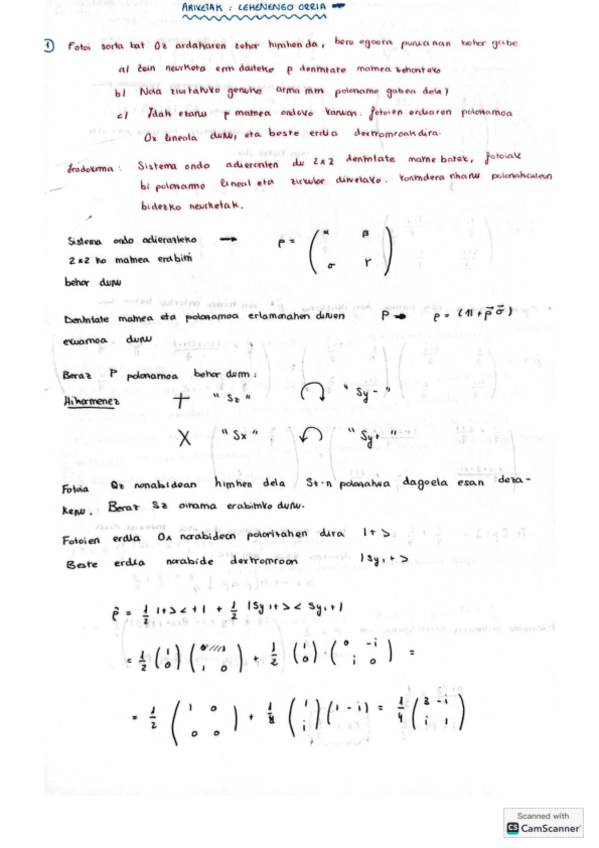 ARIKETAK : LEHENENGO ORRIA →
① Fotoi sorta bat Oz ardaharen zehar himhen da, bere egoera purua nan behar gabe
a) Zein neurketa erm daiteke ρ dentsitate matrizea zehazteko
b) Nola ziurtatuko genuke arma mm polarizazio gabea dela?
c) Idatz ezazu ρ matrizea ondoko kasuan. fotoien erdiaren polarizazioa
Ox lineala dute, eta beste erdia dextromroak dira.
Iradokizuna : Sistema ondo adierazten du 2x2 dentsitate matrize batek, fotoiak
bi polarizazio lineal eta zirkular dituelako. Kontsidera itzazu polarizatzaileen
bidezko neurketak.
Sistema ondo adierazteko → ρ = ( α β
2x2 ko matrizea erabili σ γ )
behar dugu
Dentsitate matrizea eta polarizazioa erlazionatzen dituen P → ρ = (1 + p⃗ σ⃗ )
ekuazioa dugu
Beraz P polarizazioa behar dugu :
+ " Sz " ↷ " Sy - "
X " Sx " ↶ " Sy+ "
Fotoia Oz norabidean himhen dela St-n polarizatua dagoela esan deza-
kegu. Beraz Sz oinarria erabiliko dugu.
Fotoien erdia Ox norabidean polarizatzen dira |+>
Beste erdia norabide dextromroan |Sy,+>
ρ̂ = 1/2 |+><+| + 1/2 |Sy,+><Sy,+|
= 1/2 ( 1 0 ) ( 1 0 ) + 1/2 ( 1 0 ) · ( 0 -i i 0 ) =
= 1/2 ( 1 0 0 0 ) + 1/4 ( 1 i ) ( 1 -i ) = 1/4 ( 3 -i i 1 )
Scanned with
CS CamScanner